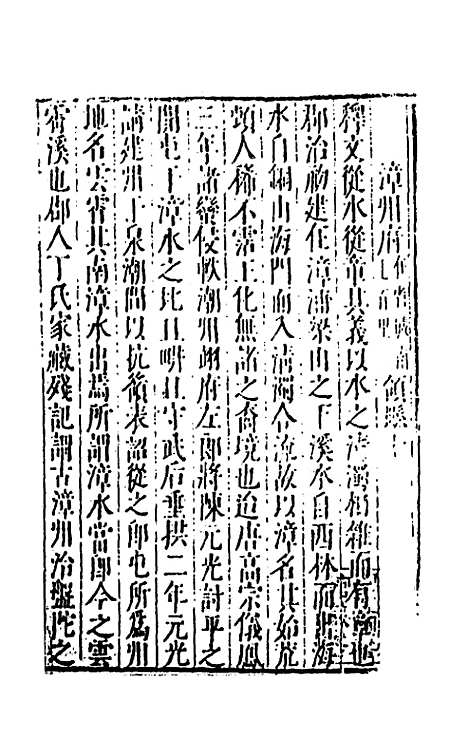 漳州府 領縣十
釋文從水從章其義以水之清濁相雜而有章也
郡治初建在漳浦梁山之下溪水自西林而出海
水自銅山海門而入清濁合流故以漳名其始荒
人稀不霑王化無諸之裔境也迨唐高宗儀鳳
三年諸蠻侵軼潮州翊府左郎將陳元光討平之
開屯于漳水之北且畊且守武后垂拱二年元光
請建州于泉潮間以抗嶺表詔從之即屯所為州
地名雲霄其南漳水出焉所謂漳水當即今之雲
霄溪也郡人丁氏家藏殘記謂古漳州治盤陀之